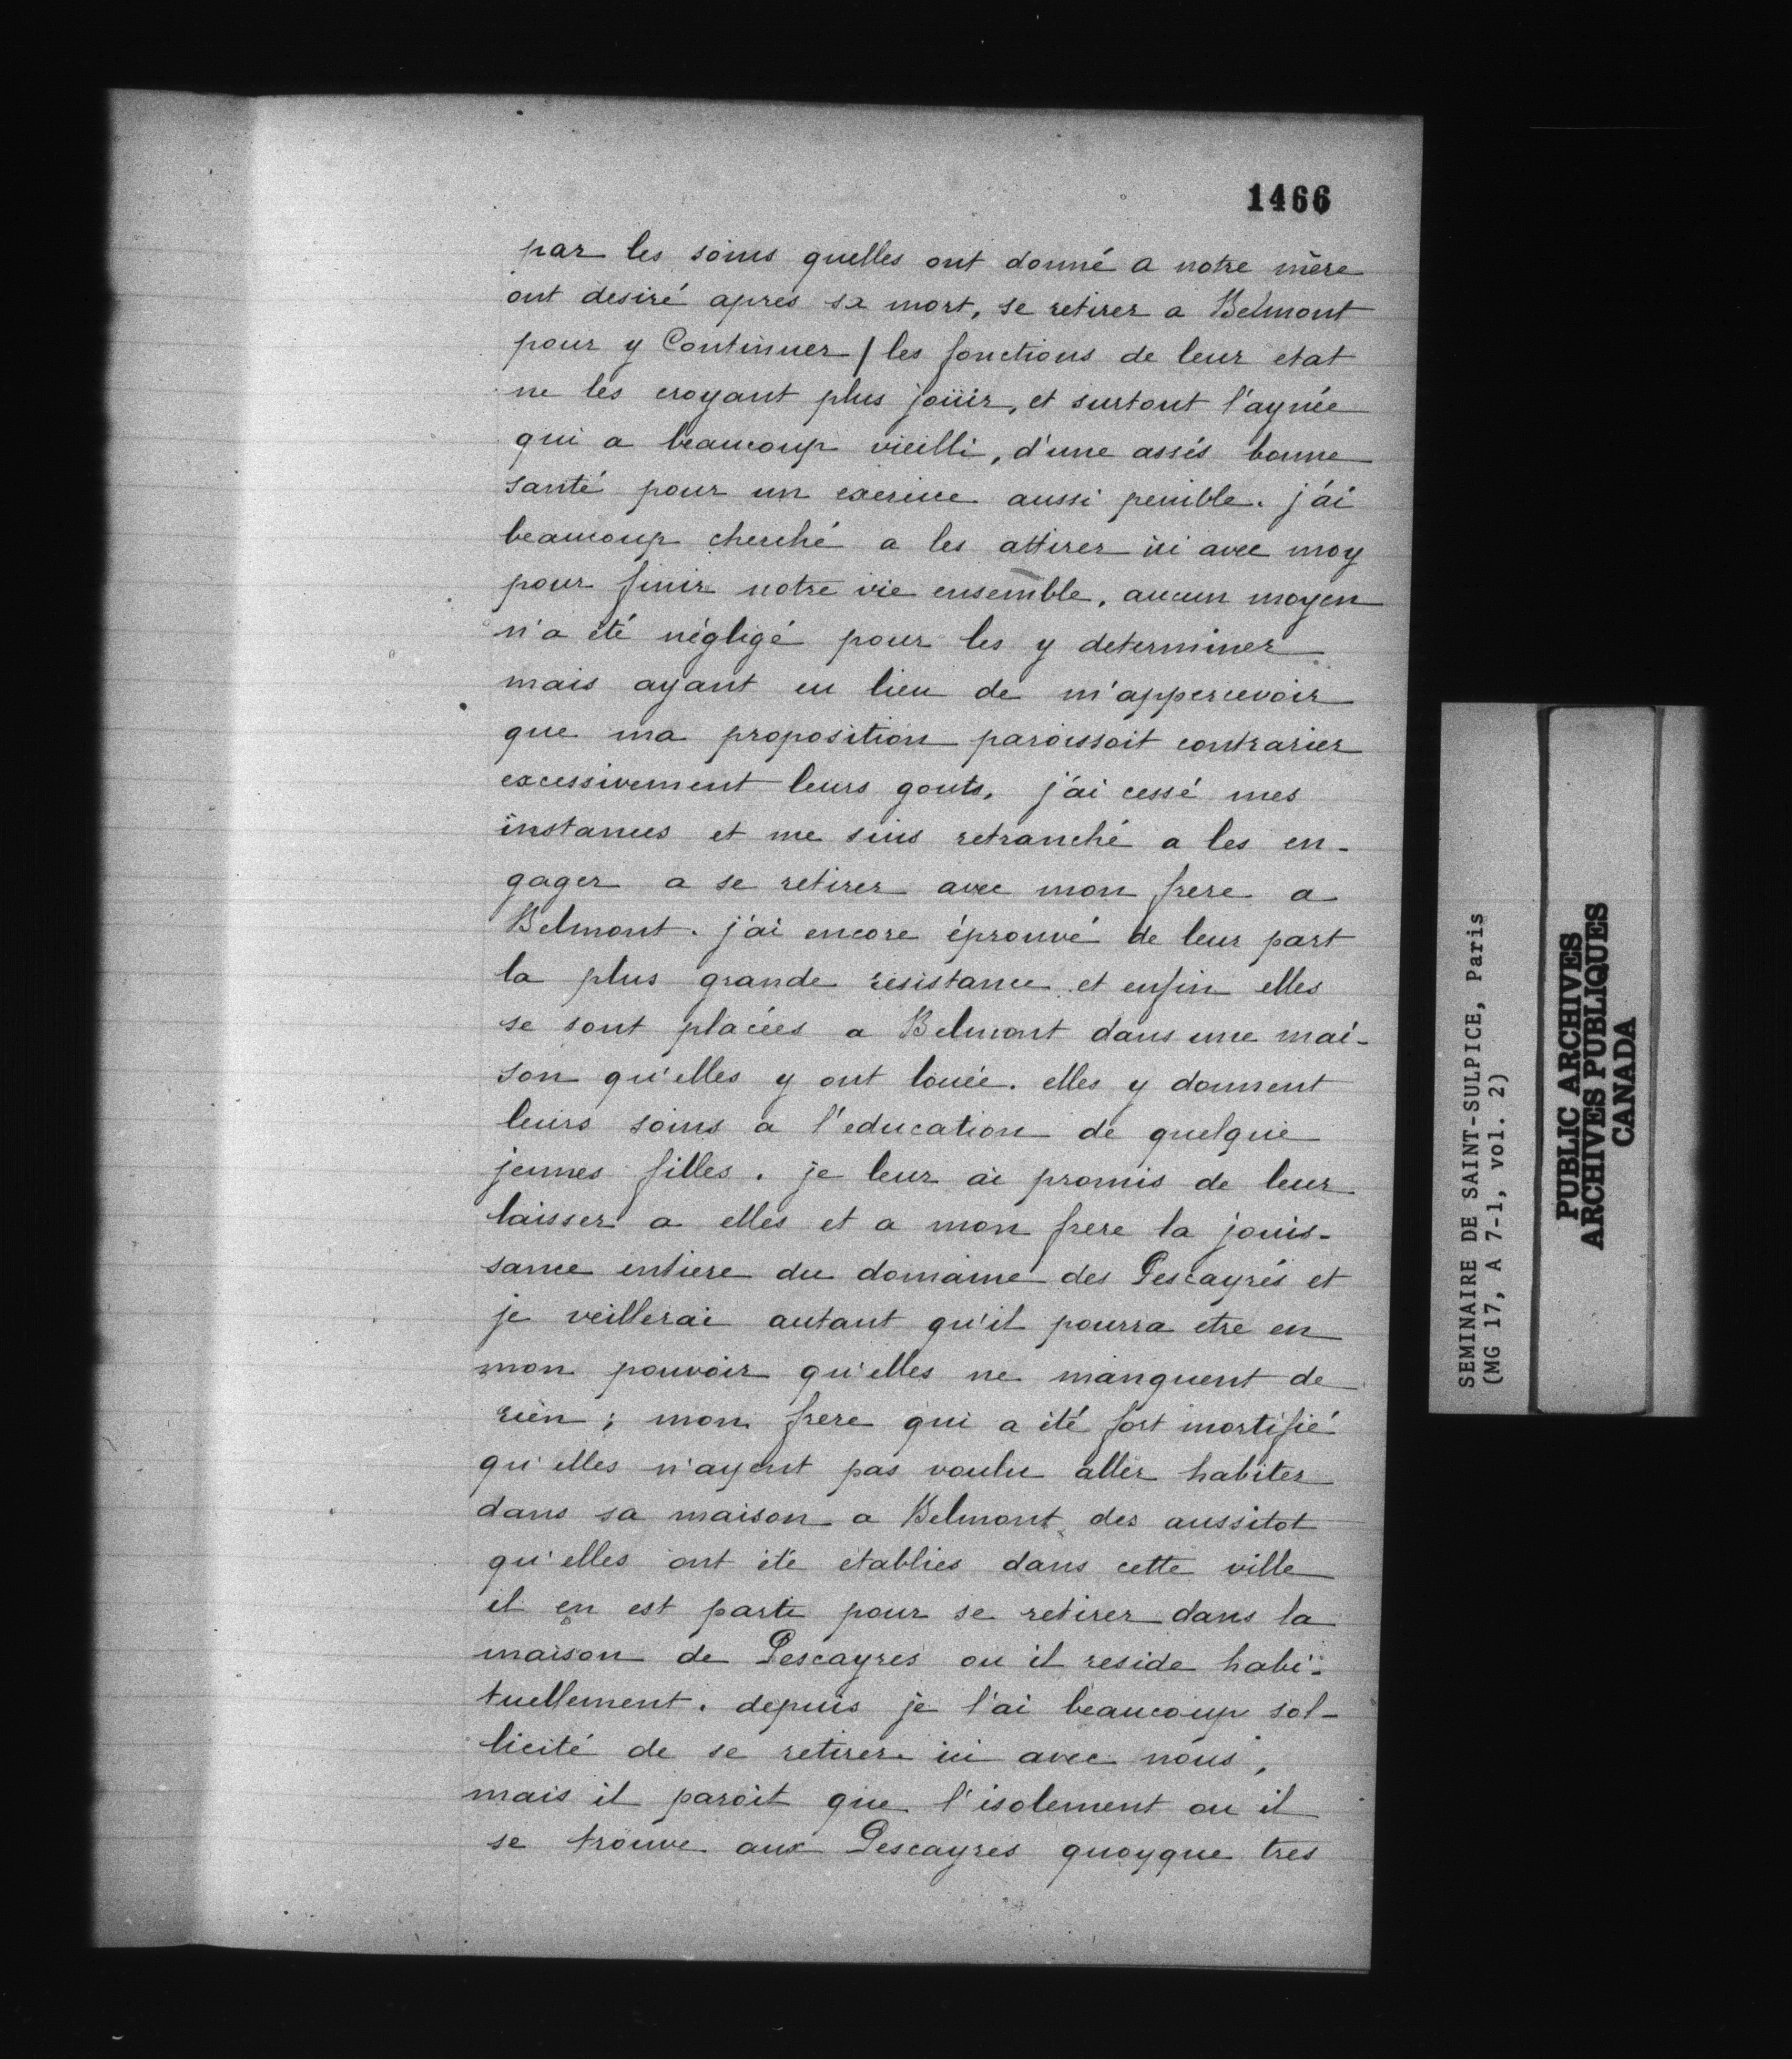 1466
par les soins quelles ont donné a notre mère
ont desiré apres sa mort, se retirer a Belmont
pour y Continuer / les fonctions de leur etat
ne les croyant plus joüir, et surtout l'aynée
qui a beaucoup vieilli, d'une assés bonne
santé pour un exercice aussi penible. j'ai
beaucoup cherché a les attirer ici avec moy
pour finir notre vie ensemble, aucun moyen
n'a été négligé pour les y determiner
mais ayant eu lieu de m'appercevoir
que ma proposition paroissoit contrarier
excessivement leurs gouts, j'ai cessé mes
instances et me suis retranché a les en-
gager a se retirer avec mon frere a
Belmont. j'ai encore éprouvé de leur part
la plus grande resistance et enfin elles
se sont placées a Belmont dans une mai-
son qu'elles y ont louée. elles y donnent
leurs soins a l'education de quelque
jeunes filles. je leur ai promis de leur
laisser a elles et a mon frere la jouis-
sance entiere du domaine des Pescayrés et
je veillerai autant qu'il pourra etre en
mon pouvoir qu'elles ne manquent de
rien; mon frere qui a été fort mortifié
qu'elles n'ayent pas voulu aller habiter
dans sa maison a Belmont des aussitot
qu'elles ont été etablies dans cette ville
il en est parti pour se retirer dans la
maison de Pescayres ou il reside habi-
tuellement. depuis je l'ai beaucoup sol-
licité de se retirer ici avec nous,
mais il paroit que l'isolement ou il
se trouve aux Pescayres quoyque tres
SEMINAIRE DE SAINT-SULPICE, Paris
(MG 17, A 7-1, vol. 2)
PUBLIC ARCHIVES
ARCHIVES PUBLIQUES
CANADA